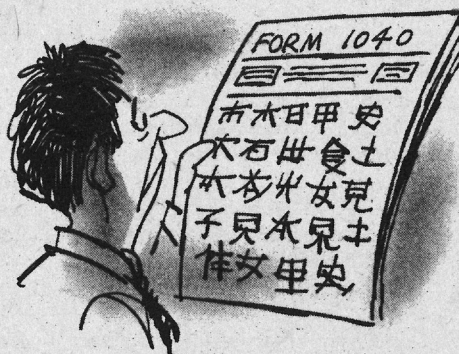 FORM 1040
市木日甲史
大石世食土
木衣火女見
子見木見土
体女里史